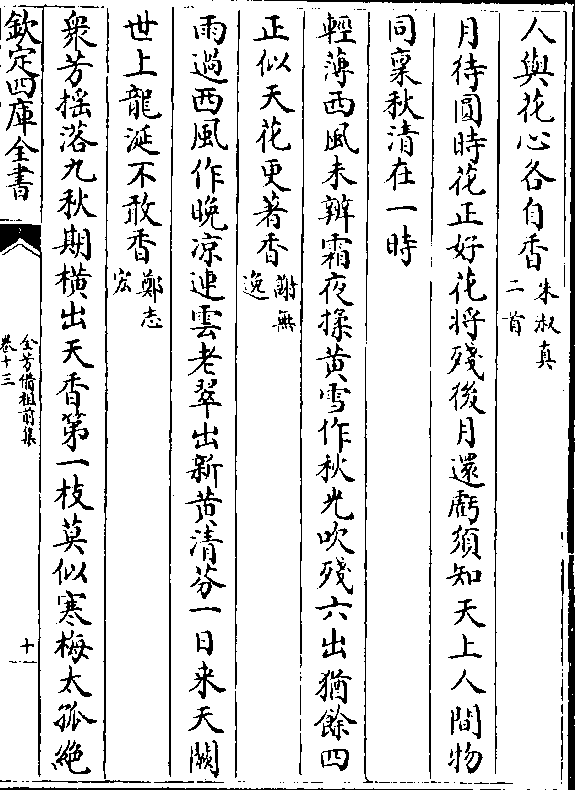 人與花心各自香朱淑真二首
月待圓時花正好花將殘後月還虧須知天上人間物
同稟秋清在一時
輕薄西風未辨霜夜揉黄雪作秋光吹殘六出猶餘四
正似天花更著香謝無逸
雨過西風作晚凉連雲老翠出新黄清芬一日来天闕
世上龍涎不敢香鄭志宏
衆芳揺落九秋期横出天香第一枝莫似寒梅太孤絶
欽定四庫全書
全芳備祖前集
卷十三
十